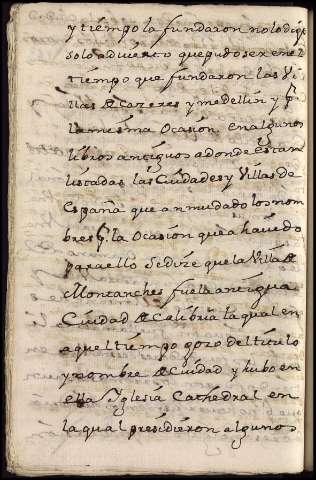 y tiempo la fundaron no lo dise
solo advierto que pudo ser en el
tiempo que fundaron las Vi
llas de Cazeres y medellin y pr
la misma Ocasion en algunos
libros antiguos adonde estan
listadas las Ciudades y Villas de
España que an mudado los nom
bres y la Ocasion que a havido
para ello Se dize que la Villa de
Montanches fue la antigua
Ciudad de Calibria la qual en
aquel tiempo gozo del titulo
y nombre de Ciudad y hubo en
ella Iglesia Cathedral en
la qual presidieron algunos